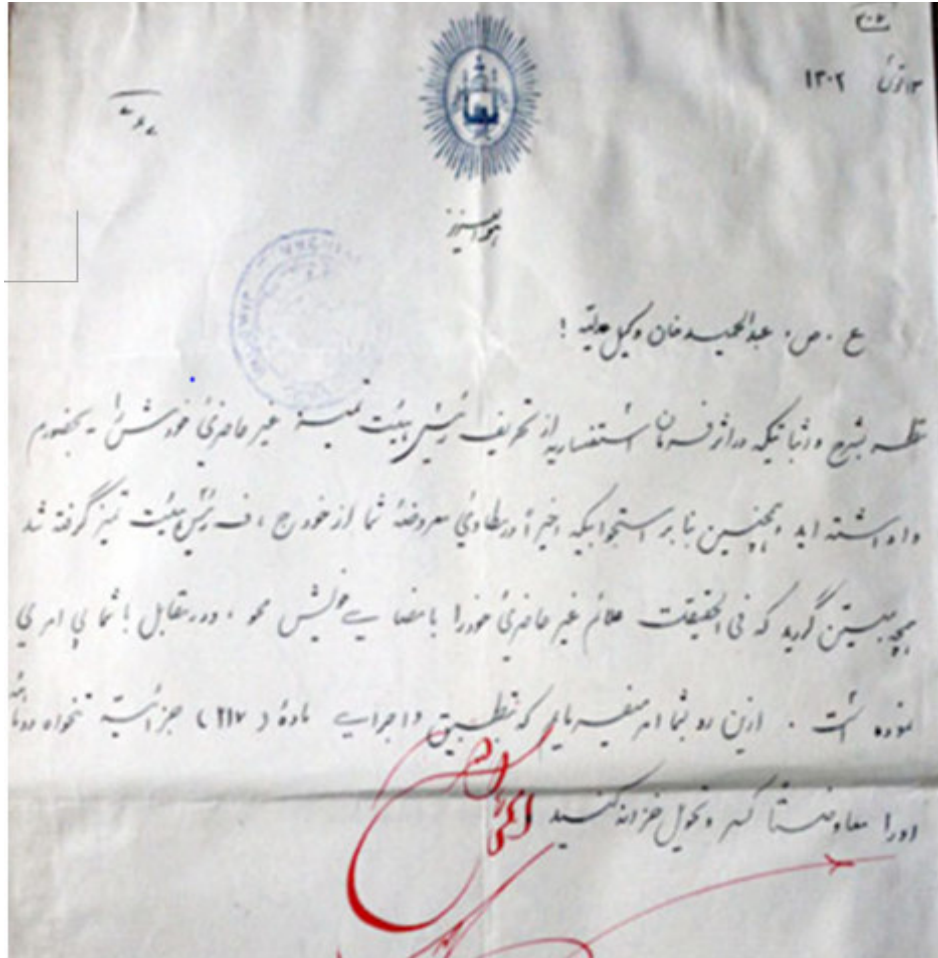 ۱۳۰۲
هوالعزیز
ع . ص . عبدالحمید خان وکیل عدلیه !
نظر بشرح و اثباتیکه در اثر فرمان استفساریه از تحریف رئیس هیئت تمیز غیر حاضریٔ خودش را بحضورم
داشته اید همچنین بنا بر استجوابیکه اخیراً معروضهٔ شما از خود ج ، ف رئیس هیئت تمیز گرفته شد
گردید که فی الحقیقت علائم غیر حاضریٔ خود را بامضای خویش محو ، و در مقابل با شما بی امری
نموده است . ازین رو بشما امر میفرمایم که تطبیق و اجرای مادهٔ (۲۱۷) جزائیه تنخواه دو ماهه
او را کسر و تحویل خزانه کنید